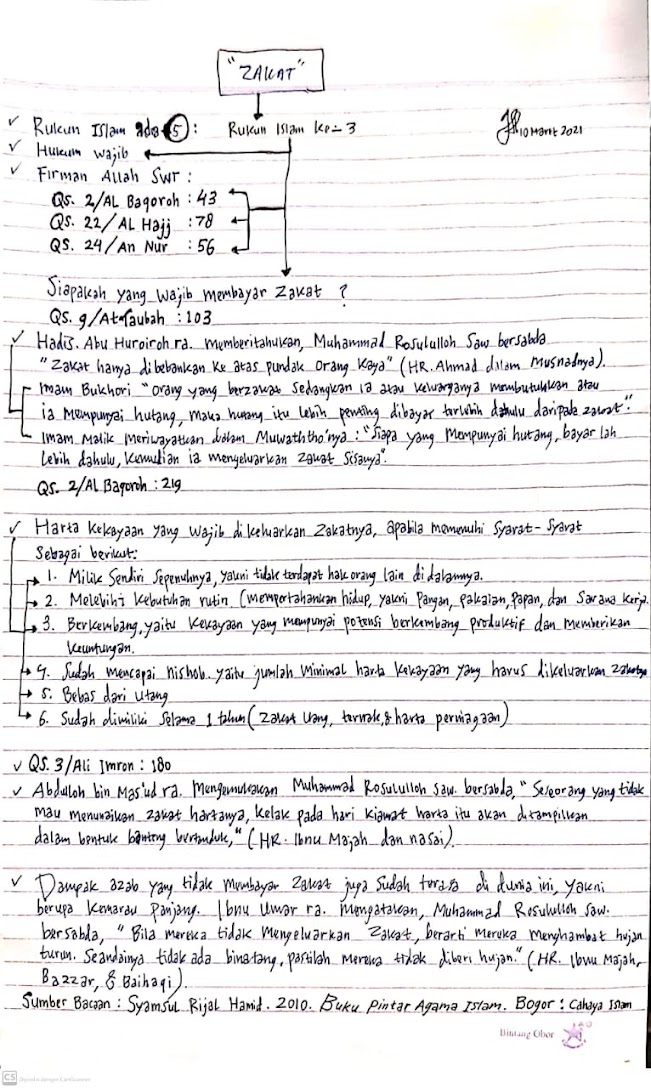 "ZAKAT"
✓ Rukun Islam ada 5 : Rukun Islam ke-3
10 Maret 2021
✓ Hukum wajib
✓ Firman Allah Swt :
Qs. 2/AL Baqoroh : 43
Qs. 22/AL Hajj : 78
Qs. 24/An Nur : 56
Siapakah yang wajib membayar zakat ?
Qs. 9/At-Taubah : 103
✓ Hadis. Abu Huroiroh ra. memberitahukan, Muhammad Rosululloh Saw bersabda
"Zakat hanya dibebankan ke atas pundak orang kaya" (HR. Ahmad dalam Musnadnya).
Imam Bukhori "Orang yang berzakat sedangkan ia atau keluarganya membutuhkan atau
ia mempunyai hutang, maka hutang itu lebih penting dibayar terlebih dahulu daripada zakat".
Imam Malik meriwayatkan dalam Muwaththo'nya : "Siapa yang mempunyai hutang, bayar lah
lebih dahulu, kemudian ia mengeluarkan zakat sisanya".
Qs. 2/AL Baqoroh : 219
✓ Harta kekayaan yang wajib dikeluarkan zakatnya, apabila memenuhi syarat-syarat
sebagai berikut:
1. Milik sendiri sepenuhnya, yakni tidak terdapat hak orang lain di dalamnya.
2. Melebihi kebutuhan rutin (mempertahankan hidup, yakni pangan, pakaian, papan, dan sarana kerja.
3. Berkembang, yaitu kekayaan yang mempunyai potensi berkembang produktif dan memberikan
keuntungan.
4. Sudah mencapai nishob. yaitu jumlah minimal harta kekayaan yang harus dikeluarkan zakatnya
5. Bebas dari utang
6. Sudah dimiliki selama 1 tahun (zakat uang, ternak, & harta perniagaan)
✓ QS. 3/Ali Imron : 180
✓ Abdulloh bin Mas'ud ra. mengemukakan Muhammad Rosululloh saw. bersabda, "Seseorang yang tidak
mau menunaikan zakat hartanya, kelak pada hari kiamat harta itu akan ditampilkan
dalam bentuk banteng bertanduk," (HR. Ibnu Majah dan nasai).
✓ Dampak azab yang tidak membayar zakat juga sudah terasa di dunia ini, yakni
berupa kemarau panjang. Ibnu Umar ra. mengatakan, Muhammad Rosululloh saw.
bersabda, "Bila mereka tidak mengeluarkan zakat, berarti mereka menghambat hujan
turun. Seandainya tidak ada binatang, pastilah mereka tidak diberi hujan." (HR. Ibnu Majah,
Bazzar, & Baihaqi).
Sumber Bacaan : Syamsul Rijal Hamid. 2010. Buku Pintar Agama Islam. Bogor : Cahaya Islam
Bintang Obor
CS Dipindai dengan CamScanner